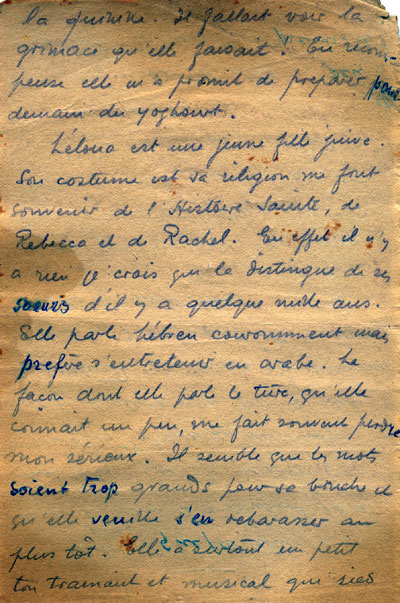 la quinine. Il fallait voir la
grimace qu'elle faisait. En recom-
pense elle m'a promit de preparer pour
demain du yoghourt.
Léloua est une jeune fille juive.
Son costume est sa religion me font
souvenir de l'Histoire Sainte, de
Rebecca et de Rachel. En effet il n'y
a rien je crois qui la distingue de ses
soeurs d'il y a quelque mille ans.
Elle parle hébreu couramment mais
prefère s'entretenir en arabe. La
façon dont elle parle le turc, qu'elle
connait un peu, me fait souvent perdre
mon sérieux. Il semble que les mots
soient trop grands pour sa bouche et
qu'elle veuille s'en rebarasser au
plus tôt. Elle a surtout un petit
ton trainant et musical qui sied